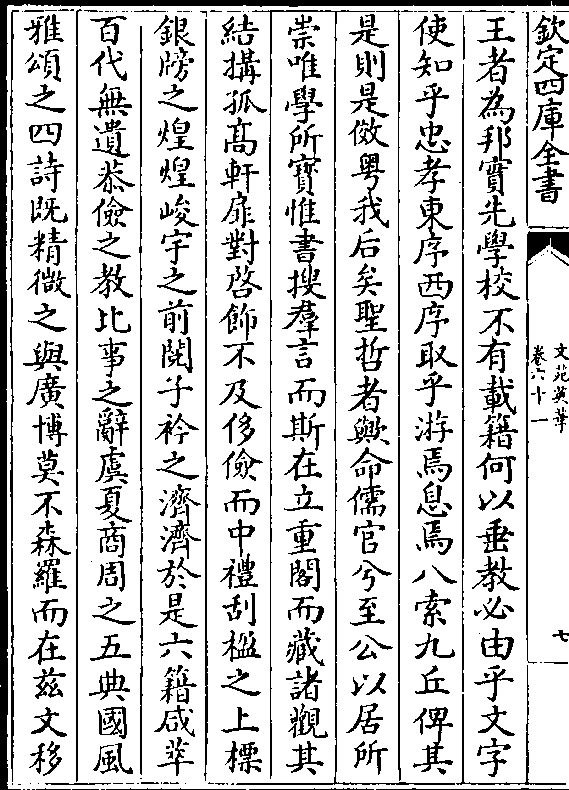 欽定四庫全書
文苑英華
卷六十一
七
王者為邦實先學校不有載籍何以垂教必由乎文字
使知乎忠孝東序西序取乎游焉息焉八索九丘俾其
是則是傚粤我后矣聖哲者歟命儒官兮至公以居所
崇唯學所寳惟書搜羣言而斯在立重閣而藏諸觀其
結搆孤髙軒扉對啓飾不及侈儉而中禮刮楹之上標
銀牓之煌煌峻宇之前閲子衿之濟濟於是六籍咸萃
百代無遺恭儉之教比事之辭虞夏商周之五典國風
雅頌之四詩既精微之與廣博莫不森羅而在兹文移